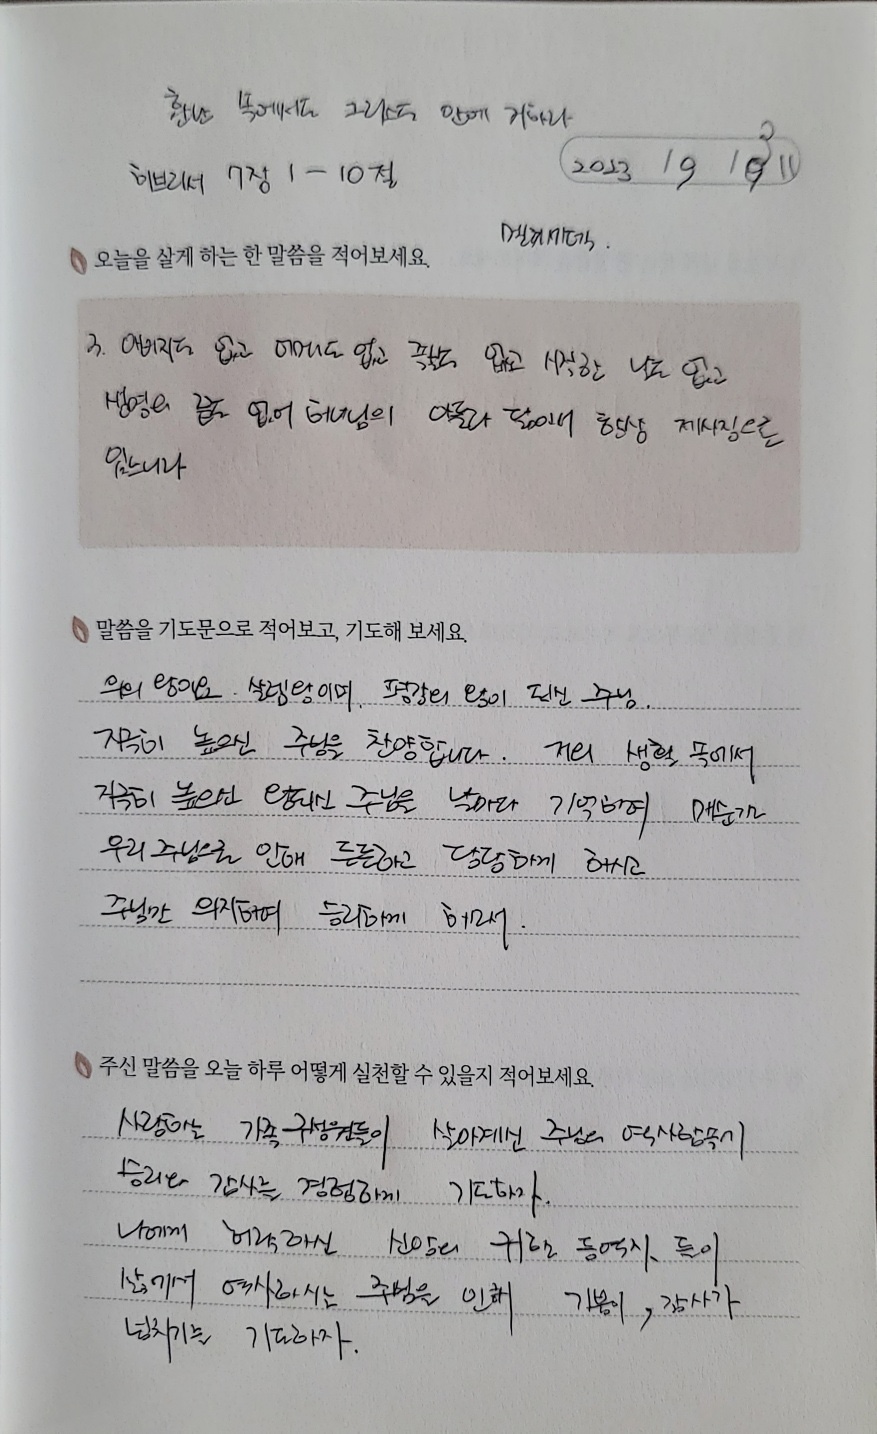 환난 속에서도 그리스도 안에 거하라
히브리서 7장 1 - 10절
2023 / 9 /
멜기세덱.
오늘을 살게 하는 한 말씀을 적어보세요.
3. 아버지도 없고 어머니도 없고 족보도 없고 시작한 날도 없고
생명의 끝도 없어 하나님의 아들과 닮아서 항상 제사장으로
있느니라
말씀을 기도문으로 적어보고, 기도해 보세요.
의의 왕이요. 살렘왕이며, 평강의 왕이 되신 주님.
지극히 높으신 주님을 찬양합니다. 저의 생활 속에서
지극히 높으신 왕되신 주님을 날마다 기억하여 매순간
우리 주님으로 인해 든든하고 당당하게 하시고
주님만 의지하여 승리하게 하소서.
주신 말씀을 오늘 하루 어떻게 실천할 수 있을지 적어보세요.
사랑하는 가족 구성원들이 살아계신 주님의 역사하심속에
승리와 감사를 경험하게 기도하자.
나에게 허락하신 신앙의 귀한 동역자들이
삶에서 역사하시는 주님을 인해 기쁨이, 감사가
넘치기를 기도하자.